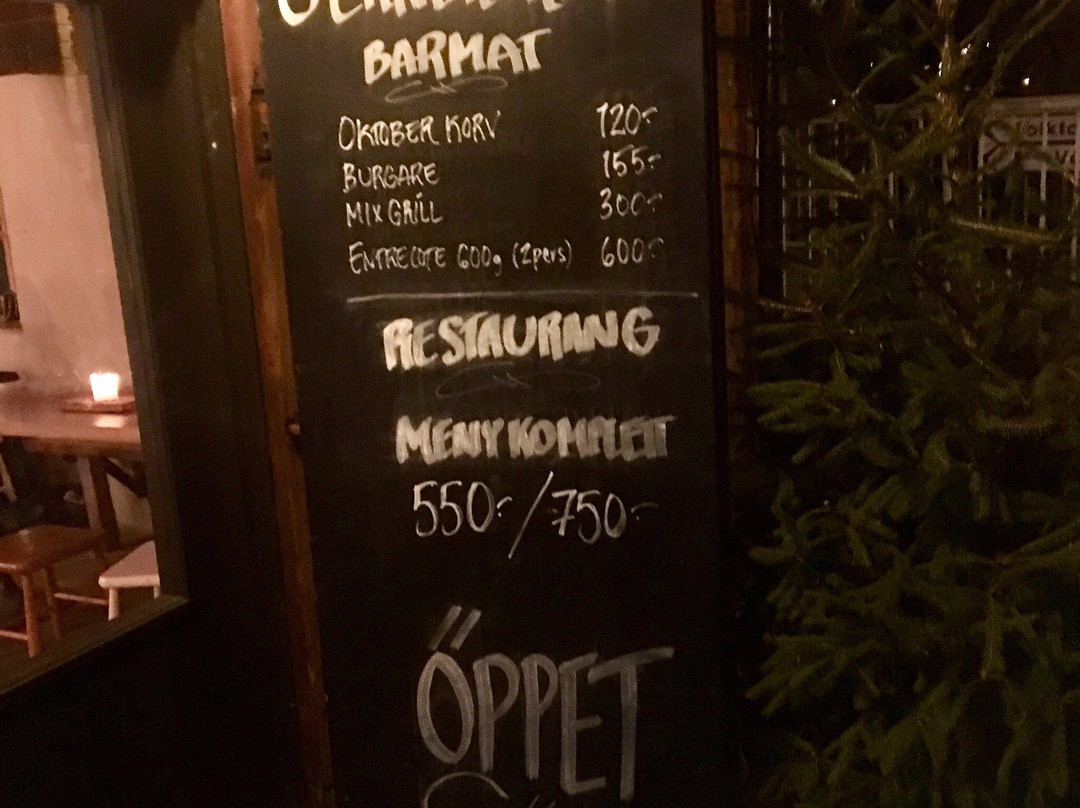 BARMAT
OKTOBER KORV 120:-
BURGARE 155:-
MIX GRILL 300:-
ENTRECOTE 600g (2pers) 600:-
RESTAURANG
MENY KOMPLETT
550:- / 750:-
ÖPPET